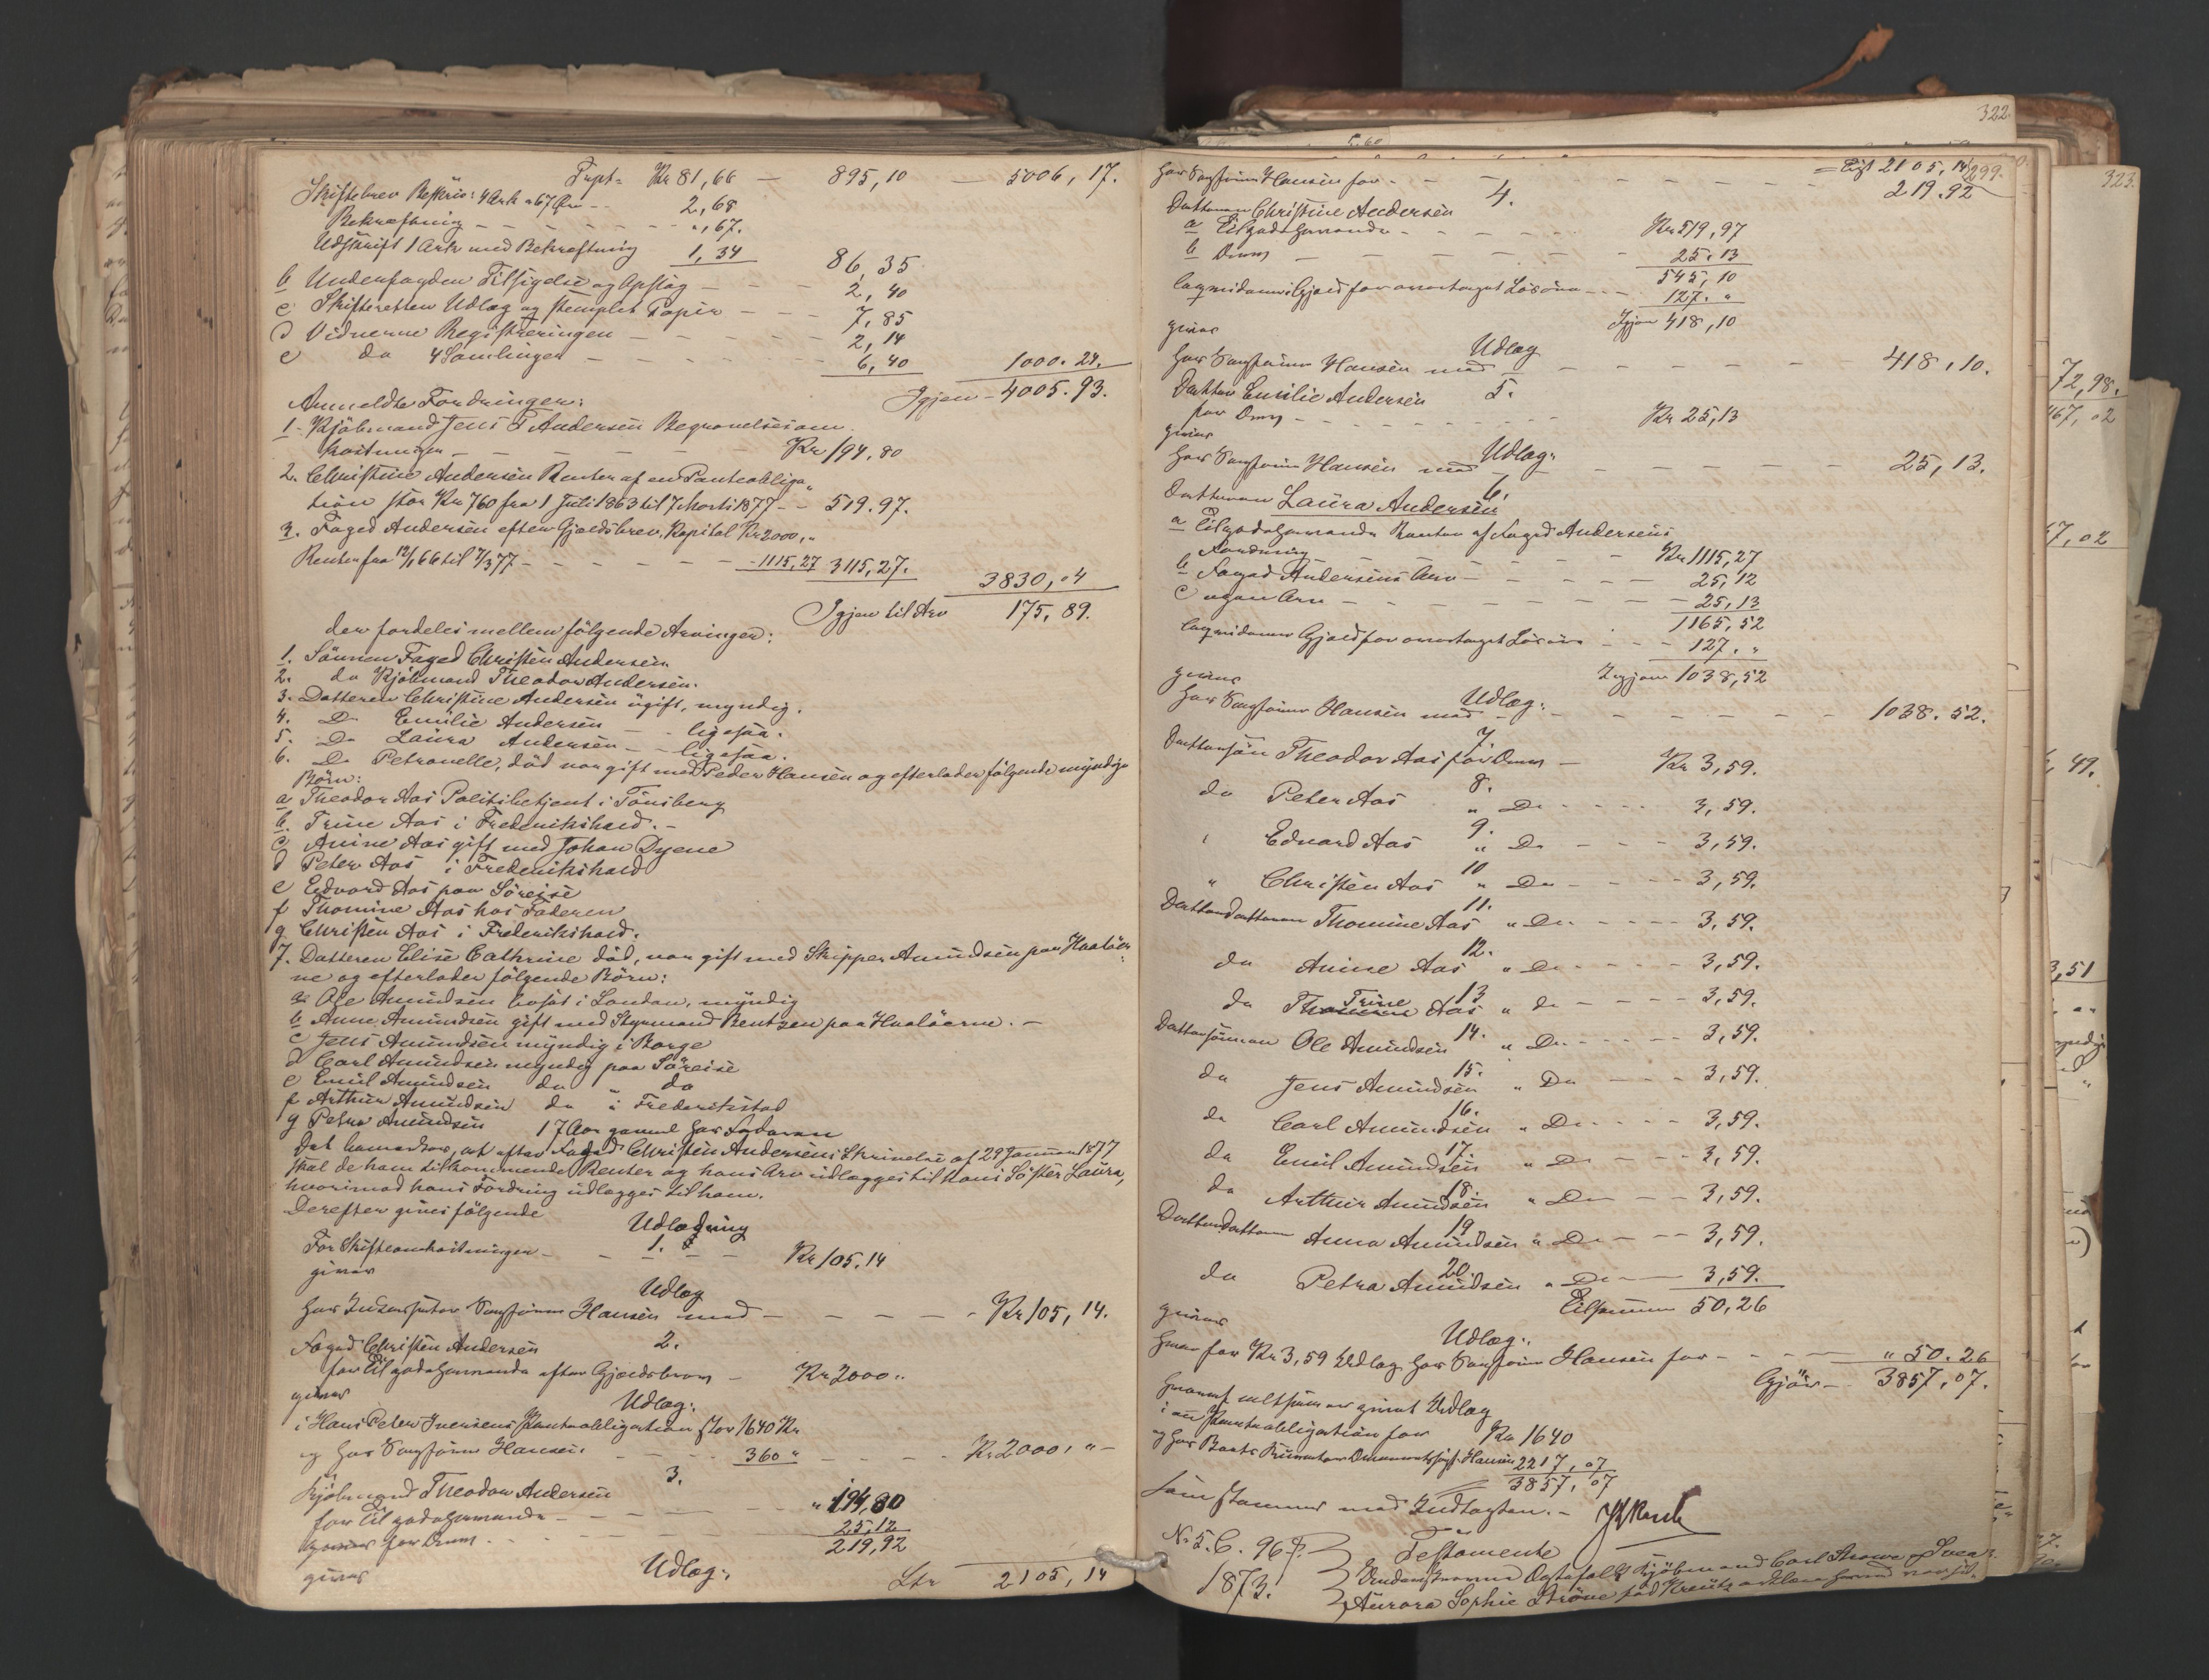 Trpt. Kr 81,66 — 895,10 — 5006,17.
Skiftebrev Beskriv: 4 Ark a 67 Øre - - 2,68
Bekræftning - - - - - „ 67.
Udskrift 1 Ark med Bekræftning 1,34 86,35
b Underfogden Tilsigelse og Opslag - - - 2,40
c Skifteretten Udlæg og stemplet Papir - - - 7,85
d Vidnerne Registreringen - - - - 2,14
e do 4 Samlinger - - - - 6,40 1000.24.
Igjen - 4005.93.
Anmeldte Fordringer:
1. Kjöbmand Jens T Andersen Begravelsesom
kostninger - - - - - Kr 194.80
2. Christine Andersen Renter af en Panteobliga„
tion stor Kr 760 fra 1 Juli 1863 til 7 Marts 1877 - - 519.97.
3. Foged Andersen efter Gjældsbrev, Kapital Kr 2000,„
Renter fra 12/1 66 til 7/3 77 - - - - - 1115,27 3115,27. 3830,04
Igjen til Arv 175,89.
der fordeles mellem følgende Arvinger:
1. Sönnen Foged Christen Andersen.
2. do Kjöbmand Theodor Andersen.
3. Datteren Christine Andersen ugift, myndig.
4. Do Emilie Andersen - - ligesaa.
5. Do Laura Andersen - - ligesaa.
6. Do Petronelle, död var gift med Peder Hansen og efterlader fölgende myndige
Börn:
a Theodor Aas Politibetjent i Tönsberg
b. Trine Aas i Frederikshald. -
c Anine Aas gift med Johan Dyene
d Peter Aas i Frederikshald
e Edvard Aas paa Söreise
f Thomine Aas hos Faderen
g Christen Aas i Frederikshald.
7. Datteren Elise Cathrine död, var gift med Skipper Amundsen paa Hvalöer
ne og efterlader fölgende Börn:
a Ole Amundsen bosat i London, myndig
b Anne Amundsen gift med Styrmand Bentzen paa Hvalöerne. -
c Jens Amundsen myndig i Borge
d Carl Amundsen myndig paa Söreise
e Emil Amundsen do " do
f Arthur Amundsen do i Frederikstad
g Petra Amundsen 17 Aar gammel hos Faderen
Det bemærkes, at efter Foged Christen Andersens Skrivelse af 29 Januar 1877
skal de ham tilkommende Renter og hans Arv udlægges til hans Söster Laura,
hvorimod hans Fordring udlægges til ham.
Derefter gives fölgende
Udlægning
1.
For Skifteomkostninger - - - Kr 105.14
gives
Udlæg
hos Sagförer Hansen med - - - - - Kr 105,14.
2.
Foged Christen Andersen
for Tilgodehavende efter Gjældsbrev - Kr 2000„
gives Udlæg:
i Hans Peter Iversens Panteobligation stor 1640 Kr
og hos Sagförer Hansen - - 360 „ - - - - Kr 2000, „ -
3.
Kjöbmand Theodor Andersen
for Tilgodehavende - - - - „ 194,80
for Arv - - - - 25,12
219,92
gives Udlæg: Ltr 2105,14
322.
Trpt 2105,14 299.
hos Sagförer Hansen for - - - - - 219.92
4.
Datteren Christine Andersen
a Tilgodehavende - - - - - Kr 519,97
b Arv - - - - - 25,13
545,10
Gjæld for overtaget Lösöre - - 127. „
Igjen 418,10
gives Udlæg
hos Sagförer Hansen med - - - - - 418,10.
5.
Datter Emilie Andersen
for Arv - - - - - Kr 25,13
gives Udlæg:
hos Sagförer Hansen med - - - - - 25,13.
6.
Datteren Laura Andersen
a Tilgodehavende Renter af Foged Andersens
Fordring - - - - Kr 1115,27
b Foged Andersens Arv - - - 25,12
c egen Arv - - - - 25,13
1165,52
Gjæld for overtaget Lösöre - - - 127. „
Igjen 1038,52
gives Udlæg:
hos Sagförer Hansen med - - - - - 1038.52.
7.
Dattersön Theodor Aas for Arv - Kr 3,59.
8.
do Peter Aas „ Do - - - 3,59.
9.
„ Edvard Aas „ Do - - - 3,59.
10
„ Christen Aas „ Do - - - 3,59.
11.
Datterdatteren Thomine Aas „ Do - - - 3,59.
12.
do Anine Aas „ Do - - - 3,59.
13
do Trine Aas „ do - - - 3,59.
14.
Dattersönnen Ole Amundsen „ Do - - - 3,59.
15.
do Jens Amundsen „ Do - - - 3,59.
16.
do Carl Amundsen „ Do - - - 3,59.
17.
do Emil Amundsen „ Do - - - 3,59.
18.
do Arthur Amundsen „ Do - - 3,59.
19
Datterdatteren Anna Amundsen „ Do - - 3,59.
20.
do Petra Amundsen „ Do - - 3,59.
Tilsammen 50,26
gives Udlæg:
hver for Kr 3,59 Udlæg hos Sagförer Hansen for - - - „ 50.26
Gjör - 3857,07.
Hvoraf er givet Udlæg
i en Panteobligation for Kr 1640
og hos Hansen 2217,07
3857,07
som stemmer med Indtægten. -
No 5. C. 96 Testamente
1873. Kjöbmand Carl
Aurora Sophie Ströme
323.
72,98.
467,02
67,02
49.
3,51